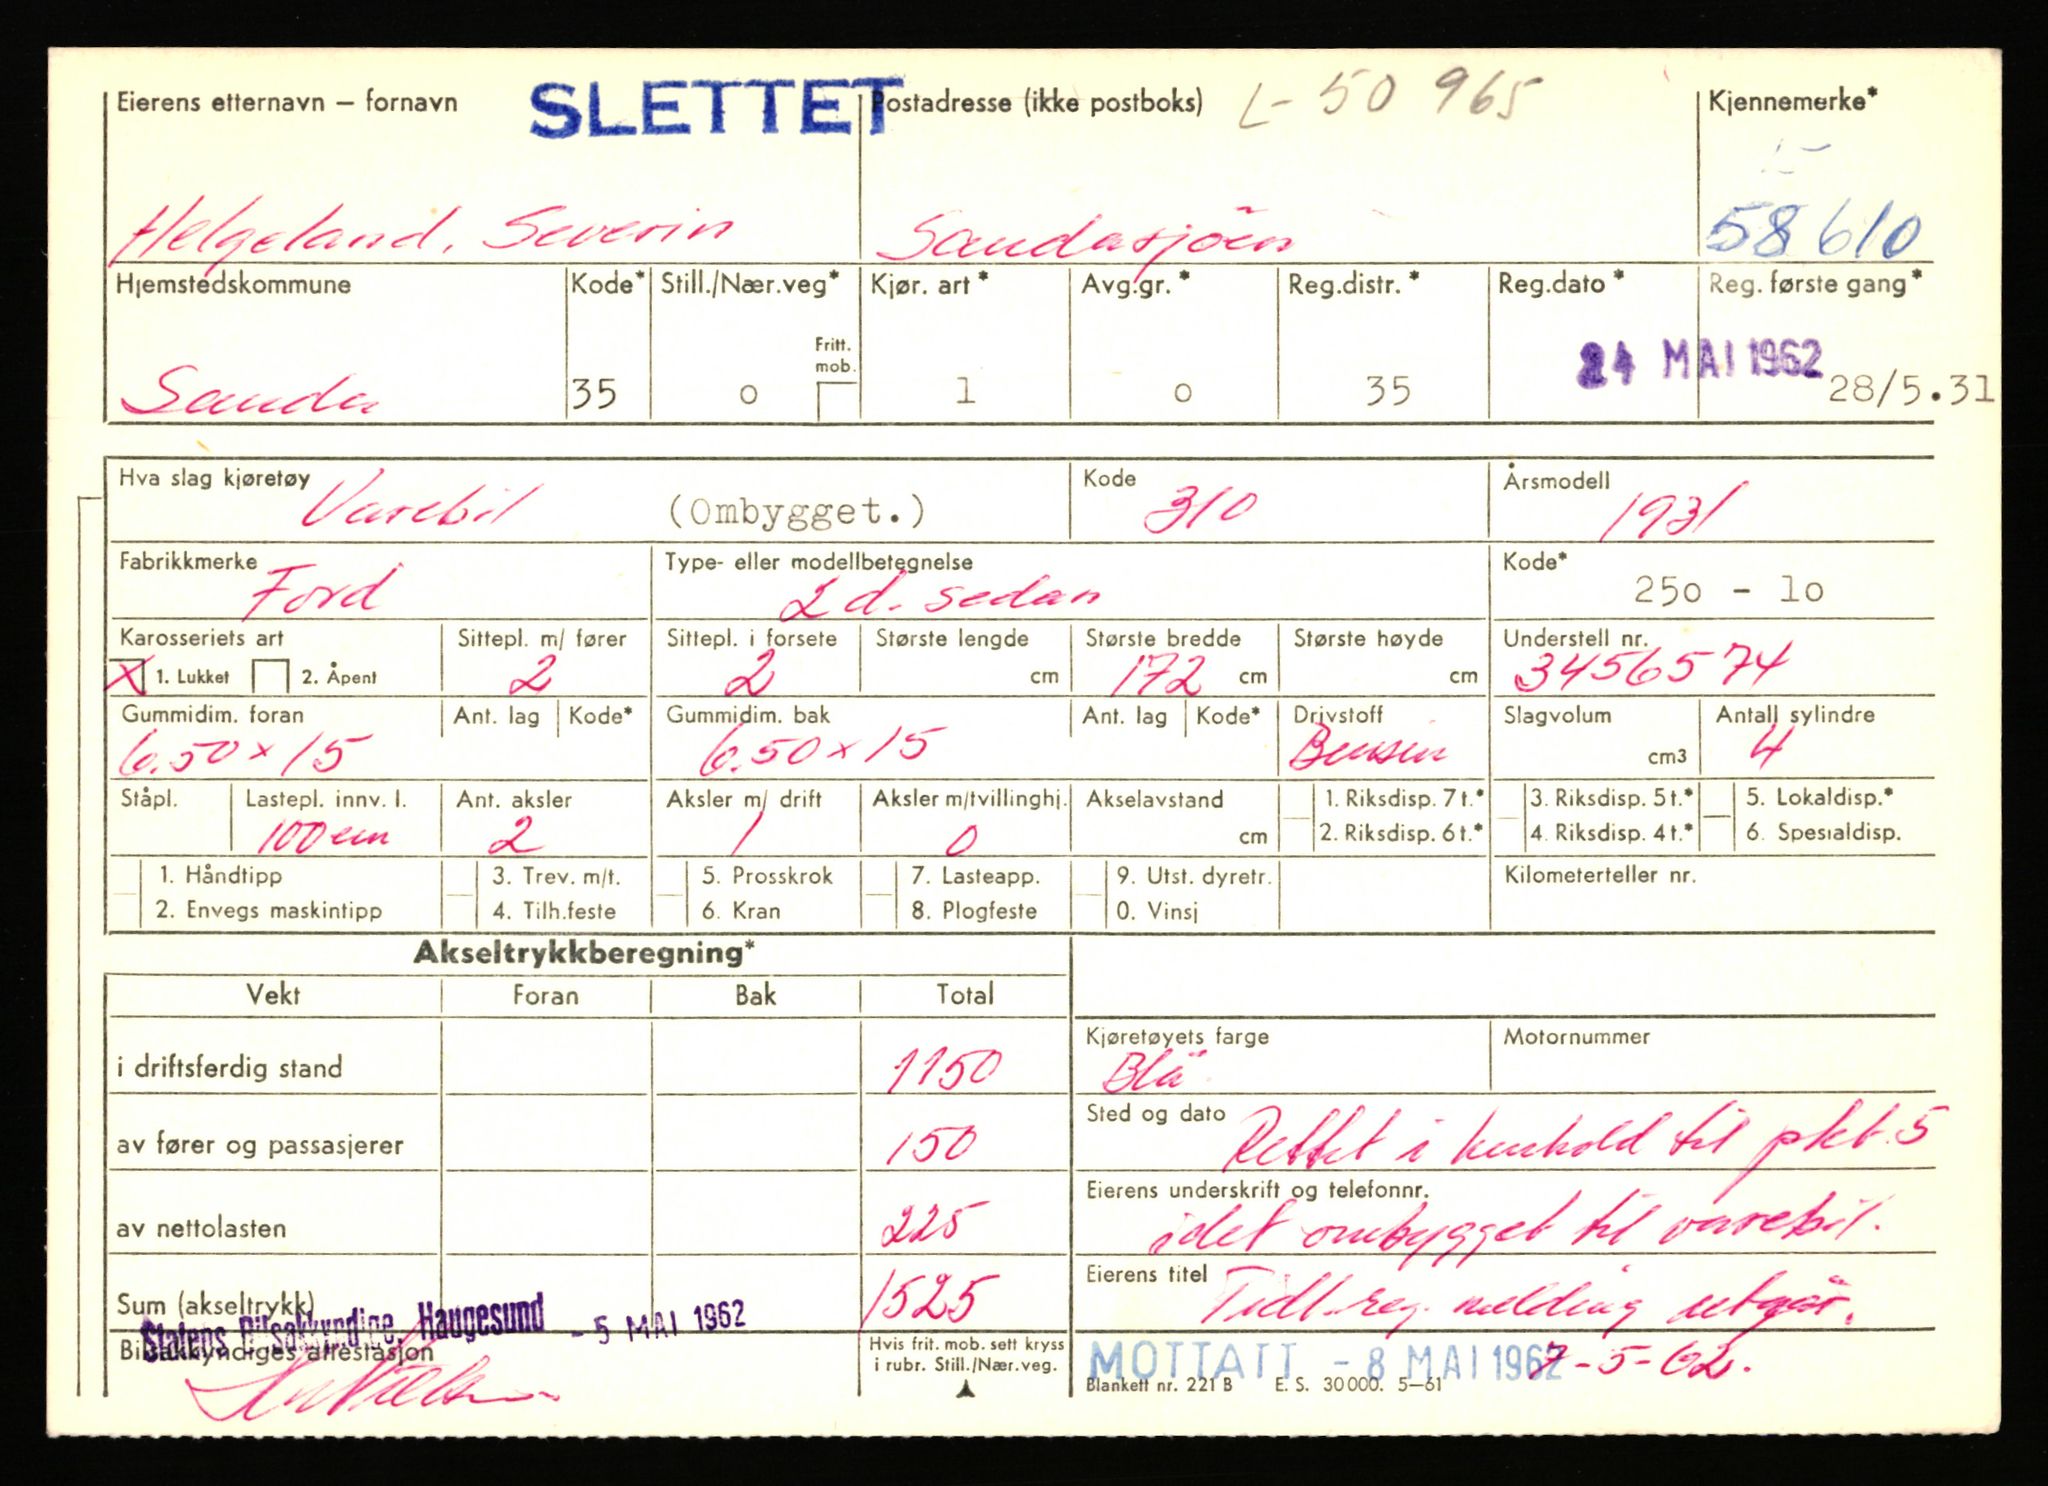 SLETTET
L- 50 965
Eierens etternavn – fornavn Postadresse (ikke postboks) Kjennemerke*
L-
Helgeland, Severin Saudasjöen 58610
Hjemstedskommune Kode* Still./Nær.veg* Kjør. art* Avg.gr.* Reg.distr.* Reg.dato* Reg. første gang*
Fritt. mob.
Sauda 35 0 1 0 35 24 MAI 1962 28/5.31
Hva slag kjøretøy Kode Årsmodell
Varebil (Ombygget.) 310 1931
Fabrikkmerke Type- eller modellbetegnelse Kode*
Ford 2 d. sedan 250 - 10
Karosseriets art Sittepl. m/ fører Sittepl. i forsete Største lengde Største bredde Største høyde Understell nr.
X 1. Lukket 2. Åpent 2 2 cm 172 cm cm 3456574
Gummidim. foran Ant. lag Kode* Gummidim. bak Ant. lag Kode* Drivstoff Slagvolum Antall sylindre
6.50 x 15 6.50 x 15 Bensin cm3 4
Ståpl. Lastepl. innv. l. Ant. aksler Aksler m/ drift Aksler m/tvillinghj. Akselavstand 1. Riksdisp. 7 t.* 3. Riksdisp. 5 t.* 5. Lokaldisp.*
100 cm 2 1 0 cm 2. Riksdisp. 6 t.* 4. Riksdisp. 4 t.* 6. Spesialdisp.
1. Håndtipp 3. Trev. m/t. 5. Prosskrok 7. Lasteapp. 9. Utst. dyretr. Kilometerteller nr.
2. Envegs maskintipp 4. Tilh.feste 6. Kran 8. Plogfeste 0. Vinsj
Akseltrykkberegning*
Vekt Foran Bak Total
Kjøretøyets farge Motornummer
i driftsferdig stand 1150 Blå
Sted og dato Rettet i henhold til pkt. 5
av fører og passasjerer 150
Eierens underskrift og telefonnr.
av nettolasten 225 idet ombygget til varebil.
Eierens titel Tidl. reg. melding utgår.
Sum (akseltrykk) 1525
Statens Bilsakkyndige, Haugesund - 5 MAI 1962
Bilsakkyndiges attestasjon
Hvis frit. mob. sett kryss
i rubr. Still./Nær.veg.
MOTTATT - 8 MAI 1962 7-5-62.
Blankett nr. 221 B E. S. 30000. 5–61